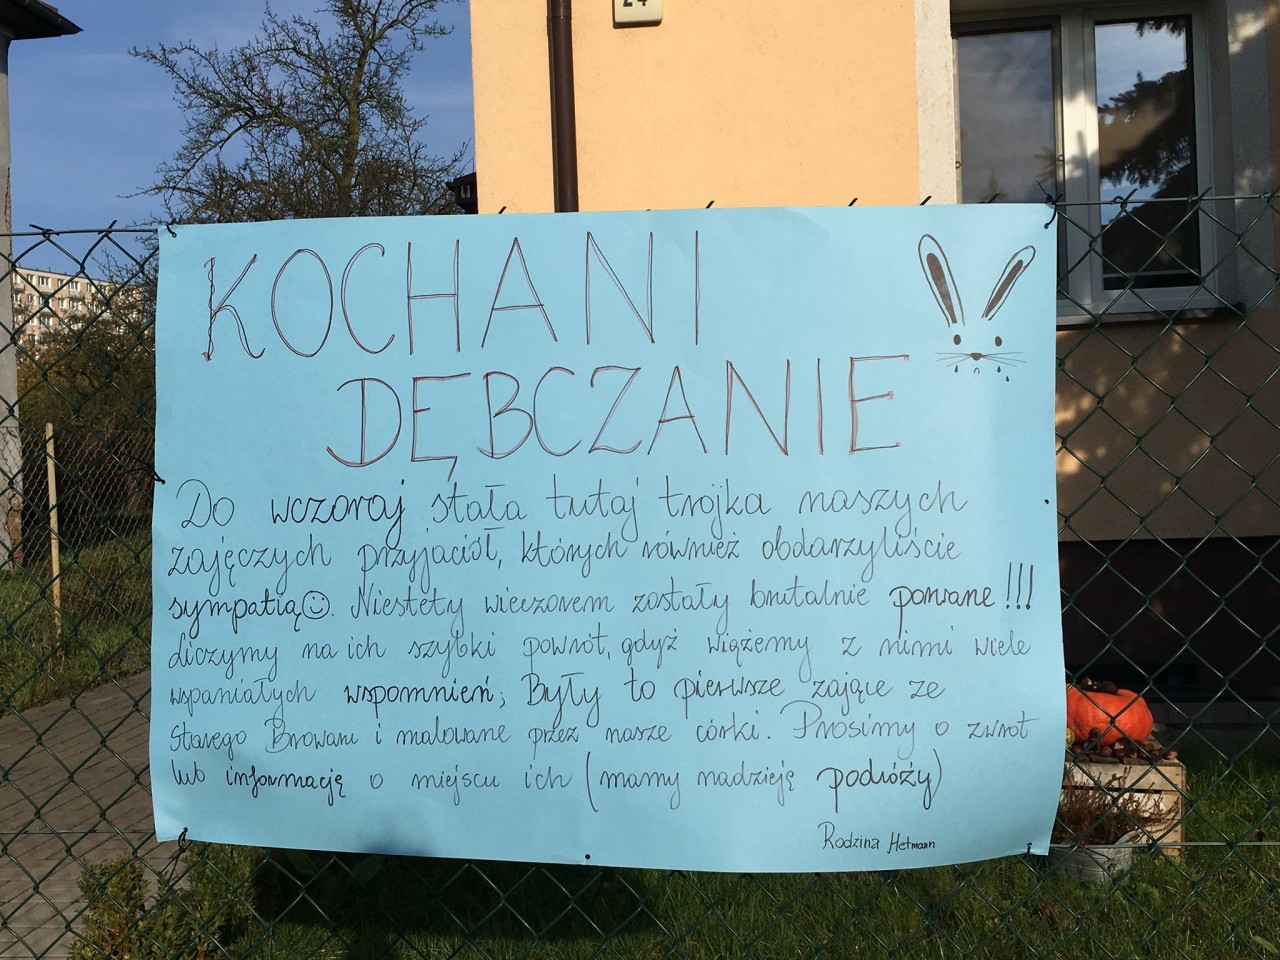 24
KOCHANI
DĘBCZANIE
Do wczoraj stała tutaj trójka naszych
zajęczych przyjaciół, których również obdarzyliście
sympatią☺. Niestety wieczorem zostały brutalnie porwane!!!
Liczymy na ich szybki powrót, gdyż wiążemy z nimi wiele
wspaniałych wspomnień; Były to pierwsze zające ze
Starego Browaru i malowane przez nasze córki. Prosimy o zwrot
lub informację o miejscu ich (mamy nadzieję podróży)
Rodzina Hetmann